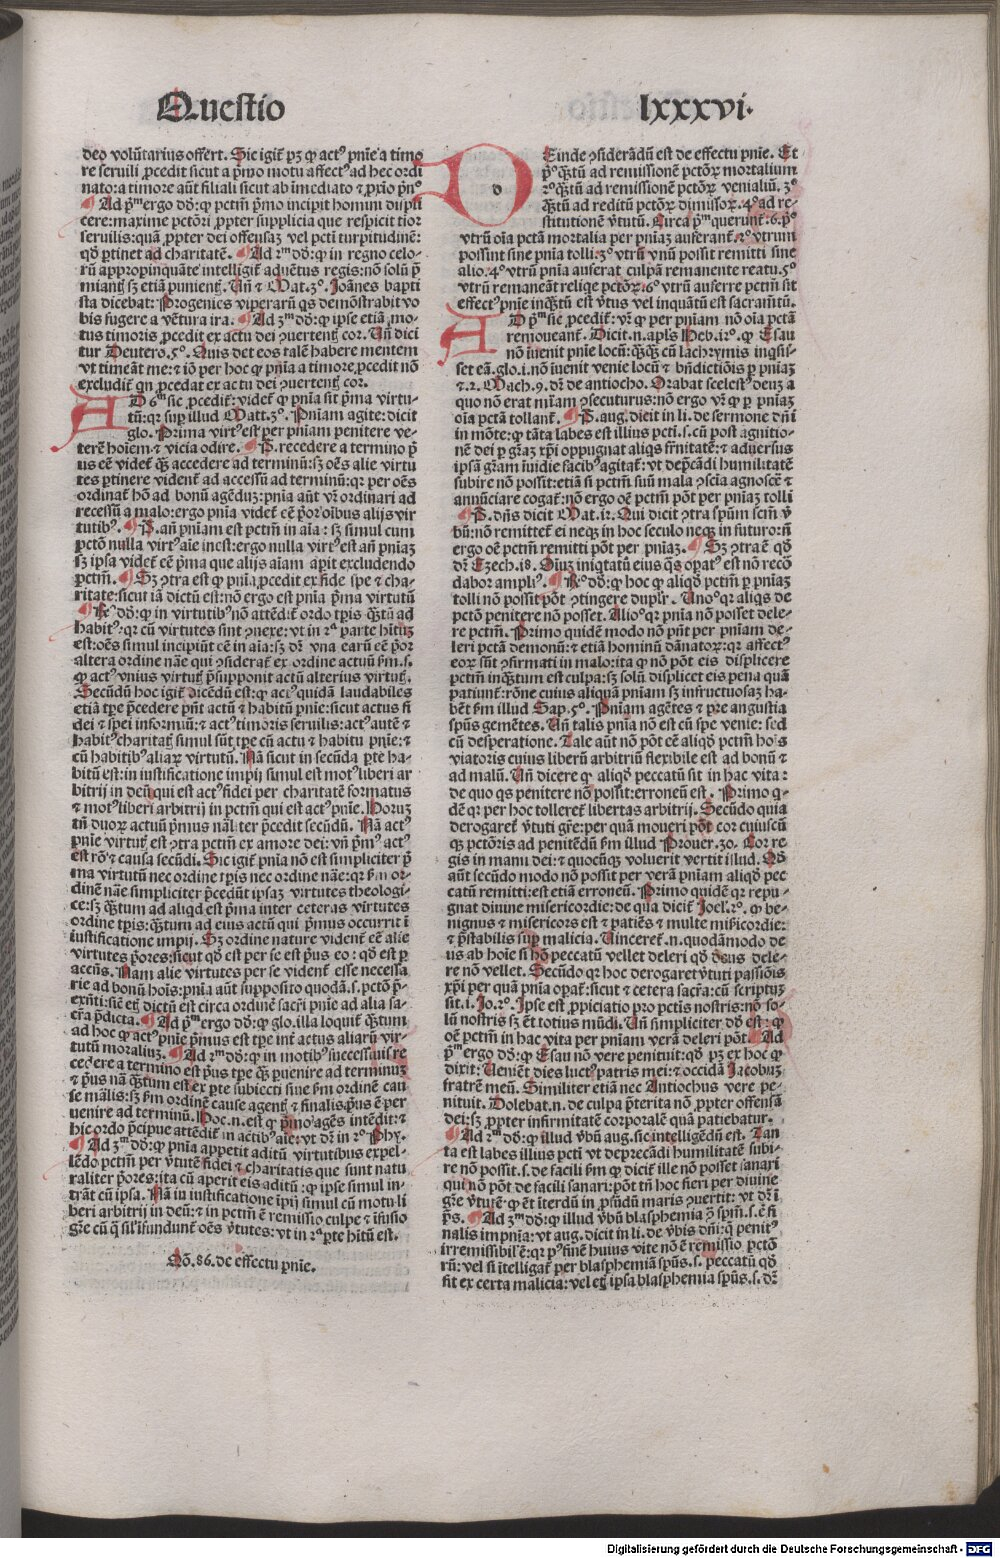 Questio lxxxvi.
deo volūtarius offert. Sic igit᷑ pꝫ ꝙ actꝰ pn̄ie a timo
re seruili ꝓcedit sicut a p̄mo motu affectꝰ ad hec ordi
nato: a timore aūt filiali sicut ab īmediato ⁊ ꝓprio p̄nº
Ad p̄ᵐ ergo dō: ꝙ pctm̄ p̄mo incipit homini displi
cere: maxime pctōri ꝓpter supplicia que respicit tior
seruilis: quā ꝓpter dei offensaꝫ vel pcti turpitudinē:
qd̄ ꝑtinet ad charitatē. Ad 2ᵐ dō: ꝙ in regno celo⸗
rū appropinquāte intelligit᷑ aduētus regis: nō solū p̄
miantꝭ sꝫ etiā punientꝭ. Vn̄ ⁊ Mat. 3º. Joānes bapti
sta dicebat: Progenies viperarū qs demōstrabit vo
bis fugere a vētura ira. Ad 3ᵐ dō: ꝙ ipse etiā mo⸗
tus timoris ꝓcedit ex actu dei ꝯuertentꝭ cor. Vn̄ dici
tur Deutero. 5º. Quis det eos talē habere mentem
vt timeāt me: ⁊ iō per hoc ꝙ pn̄ia a timore ꝓcedit nō
excludit᷑ qn̄ ꝓcedat ex actu dei ꝯuertentꝭ cor.
AD 6ᵐ sic ꝓcedit᷑: videt᷑ ꝙ pn̄ia sit p̄ma virtu⸗
tū: qꝛ suꝑ illud Matt. 3º. Pn̄iam agite: dicit
glo. Prima virtꝰ est per pn̄iam penitere ve⸗
terē hoīem: ⁊ vicia odire. P. recedere a termino p̄
us eē videt᷑ qꝫ accedere ad terminū: sꝫ oēs alie virtu
tes ꝑtinere vident᷑ ad accessū ad terminū: qꝛ per oēs
ordinat᷑ hō ad bonū agēdū: pn̄ia aūt vr̄ ordinari ad
recessū a malo: ergo pn̄ia videt᷑ eē p̄or oībus alijs vir
tutibꝰ. P. an̄ pn̄iam est pctm̄ in aīa: sꝫ simul cum
pctō nulla virtꝰ aīe inest: ergo nulla virtꝰ est an̄ pn̄iaꝫ
sꝫ ipsa videt᷑ eē p̄ma que alijs aīam aꝑit excludendo
pctm̄. Sꝫ ꝯtra est ꝙ pn̄ia ꝓcedit ex fide spe ⁊ cha⸗
ritate: sicut iā dictū est: nō ergo est pn̄ia p̄ma virtutū
Rº dō: ꝙ in virtutibꝰ nō attēdit᷑ ordo tꝑis qꝫtū ad
habitꝰ: qꝛ cū virtutes sint ꝯnexe: vt in 2ᵃ parte hituꝫ
est: oēs simul incipiūt eē in aīa: sꝫ dr̄ vna earū eē p̄or
altera ordine nāe qui ꝯsiderat᷑ ex ordine actuū ẜm. s.
ꝙ actꝰ vnius virtutꝭ p̄supponit actū alterius virtutꝭ.
Secūdū hoc igit᷑ dicēdū est: ꝙ actꝰ quidā laudabiles
etiā tꝑe p̄cedere pn̄t actū ⁊ habitū pn̄ie: sicut actus fi
dei ⁊ spei informiū: ⁊ actꝰ timoris seruilis: actꝰ autē ⁊
habitꝰ charitatꝭ simul sūt tꝑe cū actu ⁊ habitu pn̄ie: ⁊
cū habitibꝰ aliaꝝ virtutū. Nā sicut in secūda ꝑte ha⸗
bitū est: in iustificatione impij simul est motꝰ liberi ar
bitrij in deū qui est actꝰ fidei per charitatē formatus
⁊ motꝰ liberi arbitrij in pctm̄ qui est actꝰ pn̄ie. Horuꝫ
tn̄ duoꝝ actuū p̄mus nāliter p̄cedit secūdū. Nā actꝰ
pn̄ie virtutꝭ est ꝯtra pctm̄ ex amore dei: vn̄ p̄mꝰ actꝰ
est rō ⁊ causa secūdi. Sic igit᷑ pn̄ia nō est simpliciter p̄
ma virtutū nec ordine tꝑis nec ordine nāe: qꝛ ẜm or⸗
dinē nāe simpliciter p̄cedūt ipsaꝫ virtutes theologi⸗
ce: sꝫ qꝫtum ad aliqd est p̄ma inter ceteras virtutes
ordine tꝑis: qꝫtum ad eius actū qui p̄mus occurrit ī
iustificatione impij. Sꝫ ordine nature vident᷑ eē alie
virtutes p̄ores: sicut qd̄ est per se est p̄us eo: qd̄ est ꝑ
accn̄s. Nam alie virtutes per se vident᷑ esse necessa
rie ad bonū hoīs: pn̄ia aūt supposito quodā. s. pctō p̄⸗
exn̄ti: sic etꝭ dictū est circa ordinē sacr̄i pn̄ie ad alia sa⸗
cr̄a p̄dicta. Ad p̄ᵐ ergo dō: ꝙ glo. illa loquit᷑ qꝫtum
ad hoc ꝙ actꝰ pn̄ie p̄mus est tꝑe int᷑ actus aliarū vir⸗
tutū moraliuꝫ. Ad 2ᵐ dō: ꝙ in motibꝰ successiuis re
cedere a termino est p̄us tꝑe qꝫ ꝑuenire ad terminuꝫ
⁊ p̄us nā qꝫtum est ex ꝑte subiecti siue ẜm ordinē cau
se māLis: sꝫ ẜm ordinē cause agentꝭ ⁊ finalis p̄us ē per
uenire ad terminū. Hoc. n. est ꝙ p̄mo agēs intēdit: ⁊
hic ordo p̄cipue attēdit᷑ in actibꝰ aīe: vt dr̄ in 2º Phy.
Ad 3ᵐ dō: ꝙ pn̄ia appetit aditū virtutibus expel⸗
lēdo pctm̄ per v̄tutē fidei ⁊ charitatis que sunt natu
raliter p̄ores: ita tn̄ aperit eis aditū: ꝙ ipse simul in⸗
trāt cū ipsa. Nā in iustificatione īpij simul cū motu li
beri arbitrij in deū: ⁊ in pctm̄ ē remissio culpe ⁊ īfusio
gr̄e cū q̄ sil̓ īfundunt᷑ oēs v̄tutes: vt in 2ᵃ ꝑte hītū est.
Qō. 86. de effectu pn̄ie.
DEinde ꝯsiderādū est de effectu pn̄ie. Et
p̄º qꝫtū ad remissionē pctōꝝ mortalium
2º qꝫtū ad remissionē pctōꝝ venialiū. 3º
qꝫtū ad reditū pctōꝝ dimissoꝝ. 4º ad re⸗
stitutionē v̄tutū. Circa p̄ᵐ querunt᷑. 6. p̄º
vtrū oīa pctā mortalia per pn̄iaꝫ auferant᷑. 2º vtrum
possint sine pn̄ia tolli. 3º vtrū vnū possit remitti sine
alio. 4º vtrū pn̄ia auferat culpā remanente reatu. 5º
vtrū remaneāt reliqe pctōꝝ. 6º vtrū auferre pctm̄ sit
effectꝰ pn̄ie inqꝫtū est v̄tus vel inquātū est sacramētū.
AD p̄ᵐ sic ꝓcedit᷑: vr̄ ꝙ per pn̄iam nō oīa pctā
remoueant᷑. Dicit. n. apl̓s Heb. 12º. ꝙ Esau
nō īuenit pn̄ie locū: qꝫqꝫ cū lachrymis inqsis⸗
set eā. glo. i. nō īuenit venie locū ⁊ bn̄dictiōis ꝑ pn̄iaꝫ
⁊. 2. Mach. 9. dr̄ de antiocho. Orabat scelestꝰ deuꝫ a
quo nō erat mīam ꝯsecuturus: nō ergo vr̄ ꝙ ꝑ pn̄iaꝫ
oīa pctā tollant᷑. P. aug. dicit in li. de sermone dn̄i ī
in mōte: ꝙ tāta labes est illius pcti. s. cū post agnitio⸗
nē dei ꝑ gr̄aꝫ xp̄i oppugnat aliqs fr̄nitatē: ⁊ aduersus
ipsā gr̄am īuidie facibꝰ agitat᷑: vt dep̄cādi humilitatē
subire nō possit: etiā si pctm̄ suū mala ꝯscīa agnoscē ⁊
annūciare cogat᷑: nō ergo oē pctm̄ pōt per pn̄iaꝫ tolli
P. dn̄s dicit Mat. 12. Qui dicit ꝯtra spūm scm̄ v̄
bū: nō remittet᷑ ei neqꝫ in hoc seculo neqꝫ in futuro: nō
ergo oē pctm̄ remitti pōt per pn̄iaꝫ. Sꝫ ꝯtra ē qd̄
dr̄ Ezech. 18. Oīuꝫ iniqtatū eius qs oꝑatꝰ est nō reco
dabor ampliꝰ. Rº dō: ꝙ hoc ꝙ aliqd̄ pctm̄ ꝑ pn̄iaꝫ
tolli nō possit pōt ꝯtingere dupl̓r. Unoº qꝛ aliqs de
pctō penitere nō posset. Alioº qꝛ pn̄ia nō posset dele⸗
re pctm̄. Primo quidē modo nō pn̄t per pn̄iam de⸗
leri pctā demonū: ⁊ etiā hominū dānatoꝝ: qꝛ affectꝰ
eoꝝ sūt ꝯfirmati in malo: ita ꝙ nō pōt eis displicere
pctm̄ inqꝫtum est culpa: sꝫ solū displicet eis pena quā
patiunt᷑: rōne cuius aliquā pn̄iam sꝫ infructuosaꝫ ha⸗
bēt ẜm illud Sap. 5º. Pn̄iam agētes ⁊ pre angustia
spūs gemētes. Vn̄ talis pn̄ia nō est cū spe venie: sed
cū desperatione. Tale aūt nō pōt eē aliqd̄ pctm̄ hoīs
viatoris cuius liberū arbitriū flexibile est ad bonū ⁊
ad malū. Vn̄ dicere ꝙ aliqd̄ peccatū sit in hac vita:
de quo qs penitere nō possit: erroneū est. Primo q⸗
dē qꝛ per hoc tolleret᷑ libertas arbitrij. Secūdo quia
derogaret᷑ v̄tuti gr̄e: per quā moueri pōt cor cuiuscū
qꝫ pctōris ad penitēdū ẜm illud Prouer. 30. Cor re⸗
gis in manu dei: ⁊ quocūqꝫ voluerit vertit illud. Qd̄
aūt secūdo modo nō possit per verā pn̄iam aliqd̄ pec
catū remitti: est etiā erroneū. Primo quidē qꝛ repu⸗
gnat diuine misericordie: de qua dicit᷑ Joel. 2º. ꝙ be⸗
nignus ⁊ misericors est ⁊ patiēs ⁊ multe mīsricordie:
⁊ p̄stabilis suꝑ malicia. Vinceret᷑. n. quodāmodo de
us ab hoīe si hō peccatū vellet deleri qd̄ deus dele⸗
re nō vellet. Secūdo qꝛ hoc derogaret v̄tuti passiōis
xp̄i per quā pn̄ia oꝑat᷑: sicut ⁊ cetera sacr̄a: cū scriptuꝫ
sit. i. Jo. 2º. Ipse est ꝓpiciatio pro pctis nostris: nō so⸗
lū nostris sꝫ ēt totius mūdi. Vn̄ simpliciter dō est: ꝙ
oē pctm̄ in hac vita per pn̄iam verā deleri pōt. Ad
p̄ᵐ ergo dō: ꝙ Esau nō vere penituit: qd̄ pꝫ ex hoc ꝙ
dixit: Veniēt dies luctꝰ patris mei: ⁊ occidā Jacobuꝫ
fratrē meū. Similiter etiā nec Antiochus vere pe⸗
nituit. Dolebat. n. de culpa p̄terita nō ꝓpter offensā
dei: sꝫ ꝓpter infirmitatē corporalē quā patiebatur.
Ad 2ᵐ dō: ꝙ illud v̄bū aug. sic intelligēdū est. Tan
ta est labes illius pcti vt deprecādi humilitatē subi⸗
re nō possit. s. de facili ẜm ꝙ dicit᷑ ille nō posset sanari
qui nō pōt de facili sanari: pōt tn̄ hoc fieri per diuine
gr̄e v̄tutē: ꝙ ēt iterdū in ꝓfūdū maris ꝯuertit: vt dr̄ ī
p̄s. Ad 3ᵐ dō: ꝙ illud v̄bū blasphemia ꝯ spm̄. s. ē fi
nalis impn̄ia: vt aug. dicit in li. de v̄bis dn̄i: q̄ penitꝰ
irremissibil̓ ē: qꝛ pꝰ finē huius vite nō ē remissio pctō
rū: vel si ītelligat᷑ per blasphemiā spūs. s. peccatū qd̄
fit ex certa malicia: vel etꝭ ipsa blasphemia spūs. s. dr̄
Digitalisierung gefördert durch die Deutsche Forschungsgemeinschaft - DFG